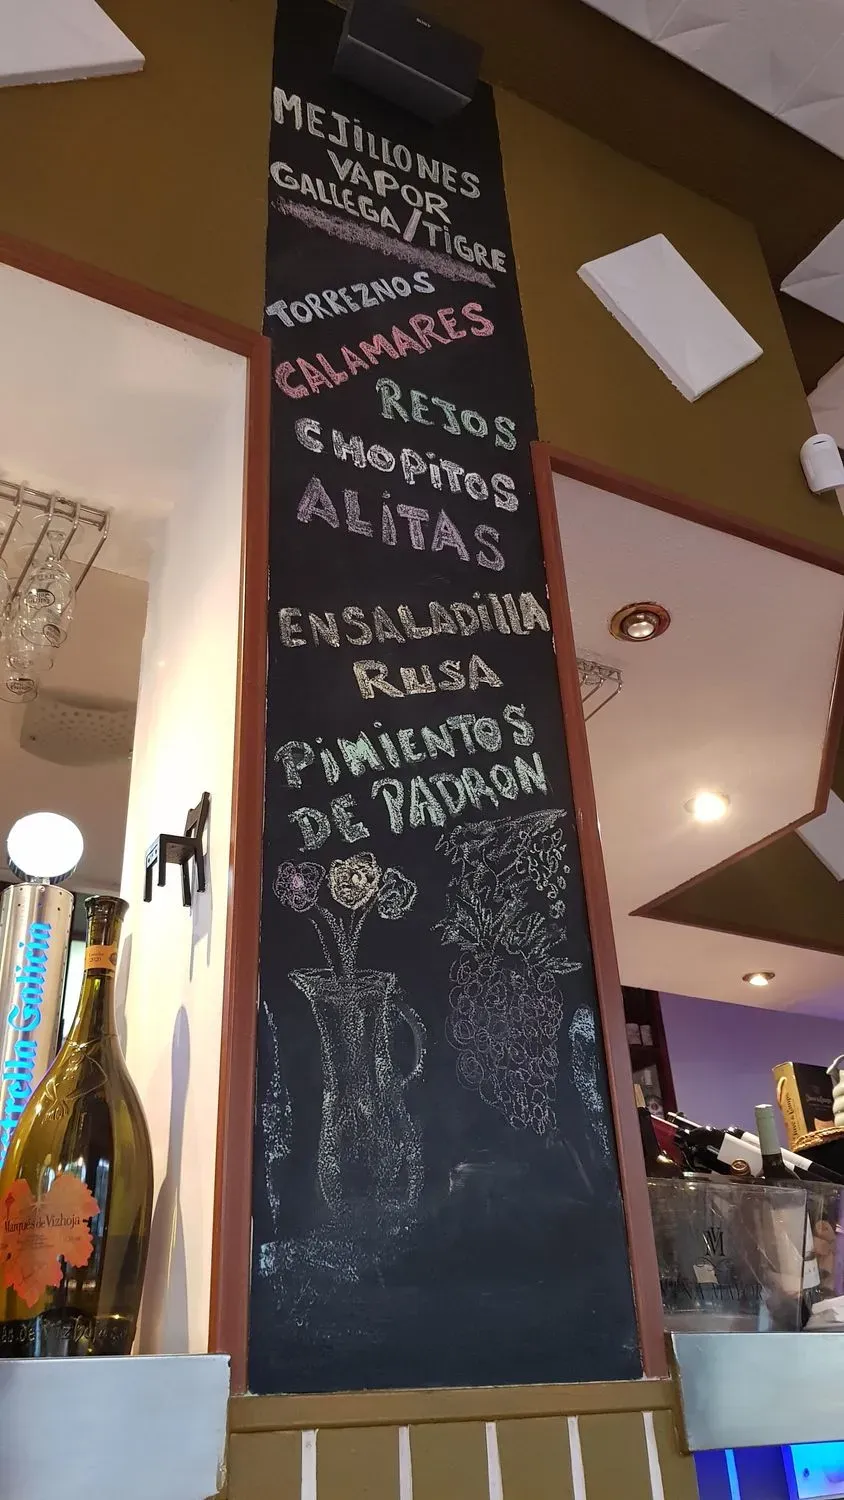 SONY
MEJILLONES
VAPOR
GALLEGA/TIGRE
TORREZNOS
CALAMARES
REJOS
CHOPITOS
ALITAS
ENSALADILLA
RUSA
PIMIENTOS
DE PADRON
Estrella Galicia
Marqués de Vizhoja